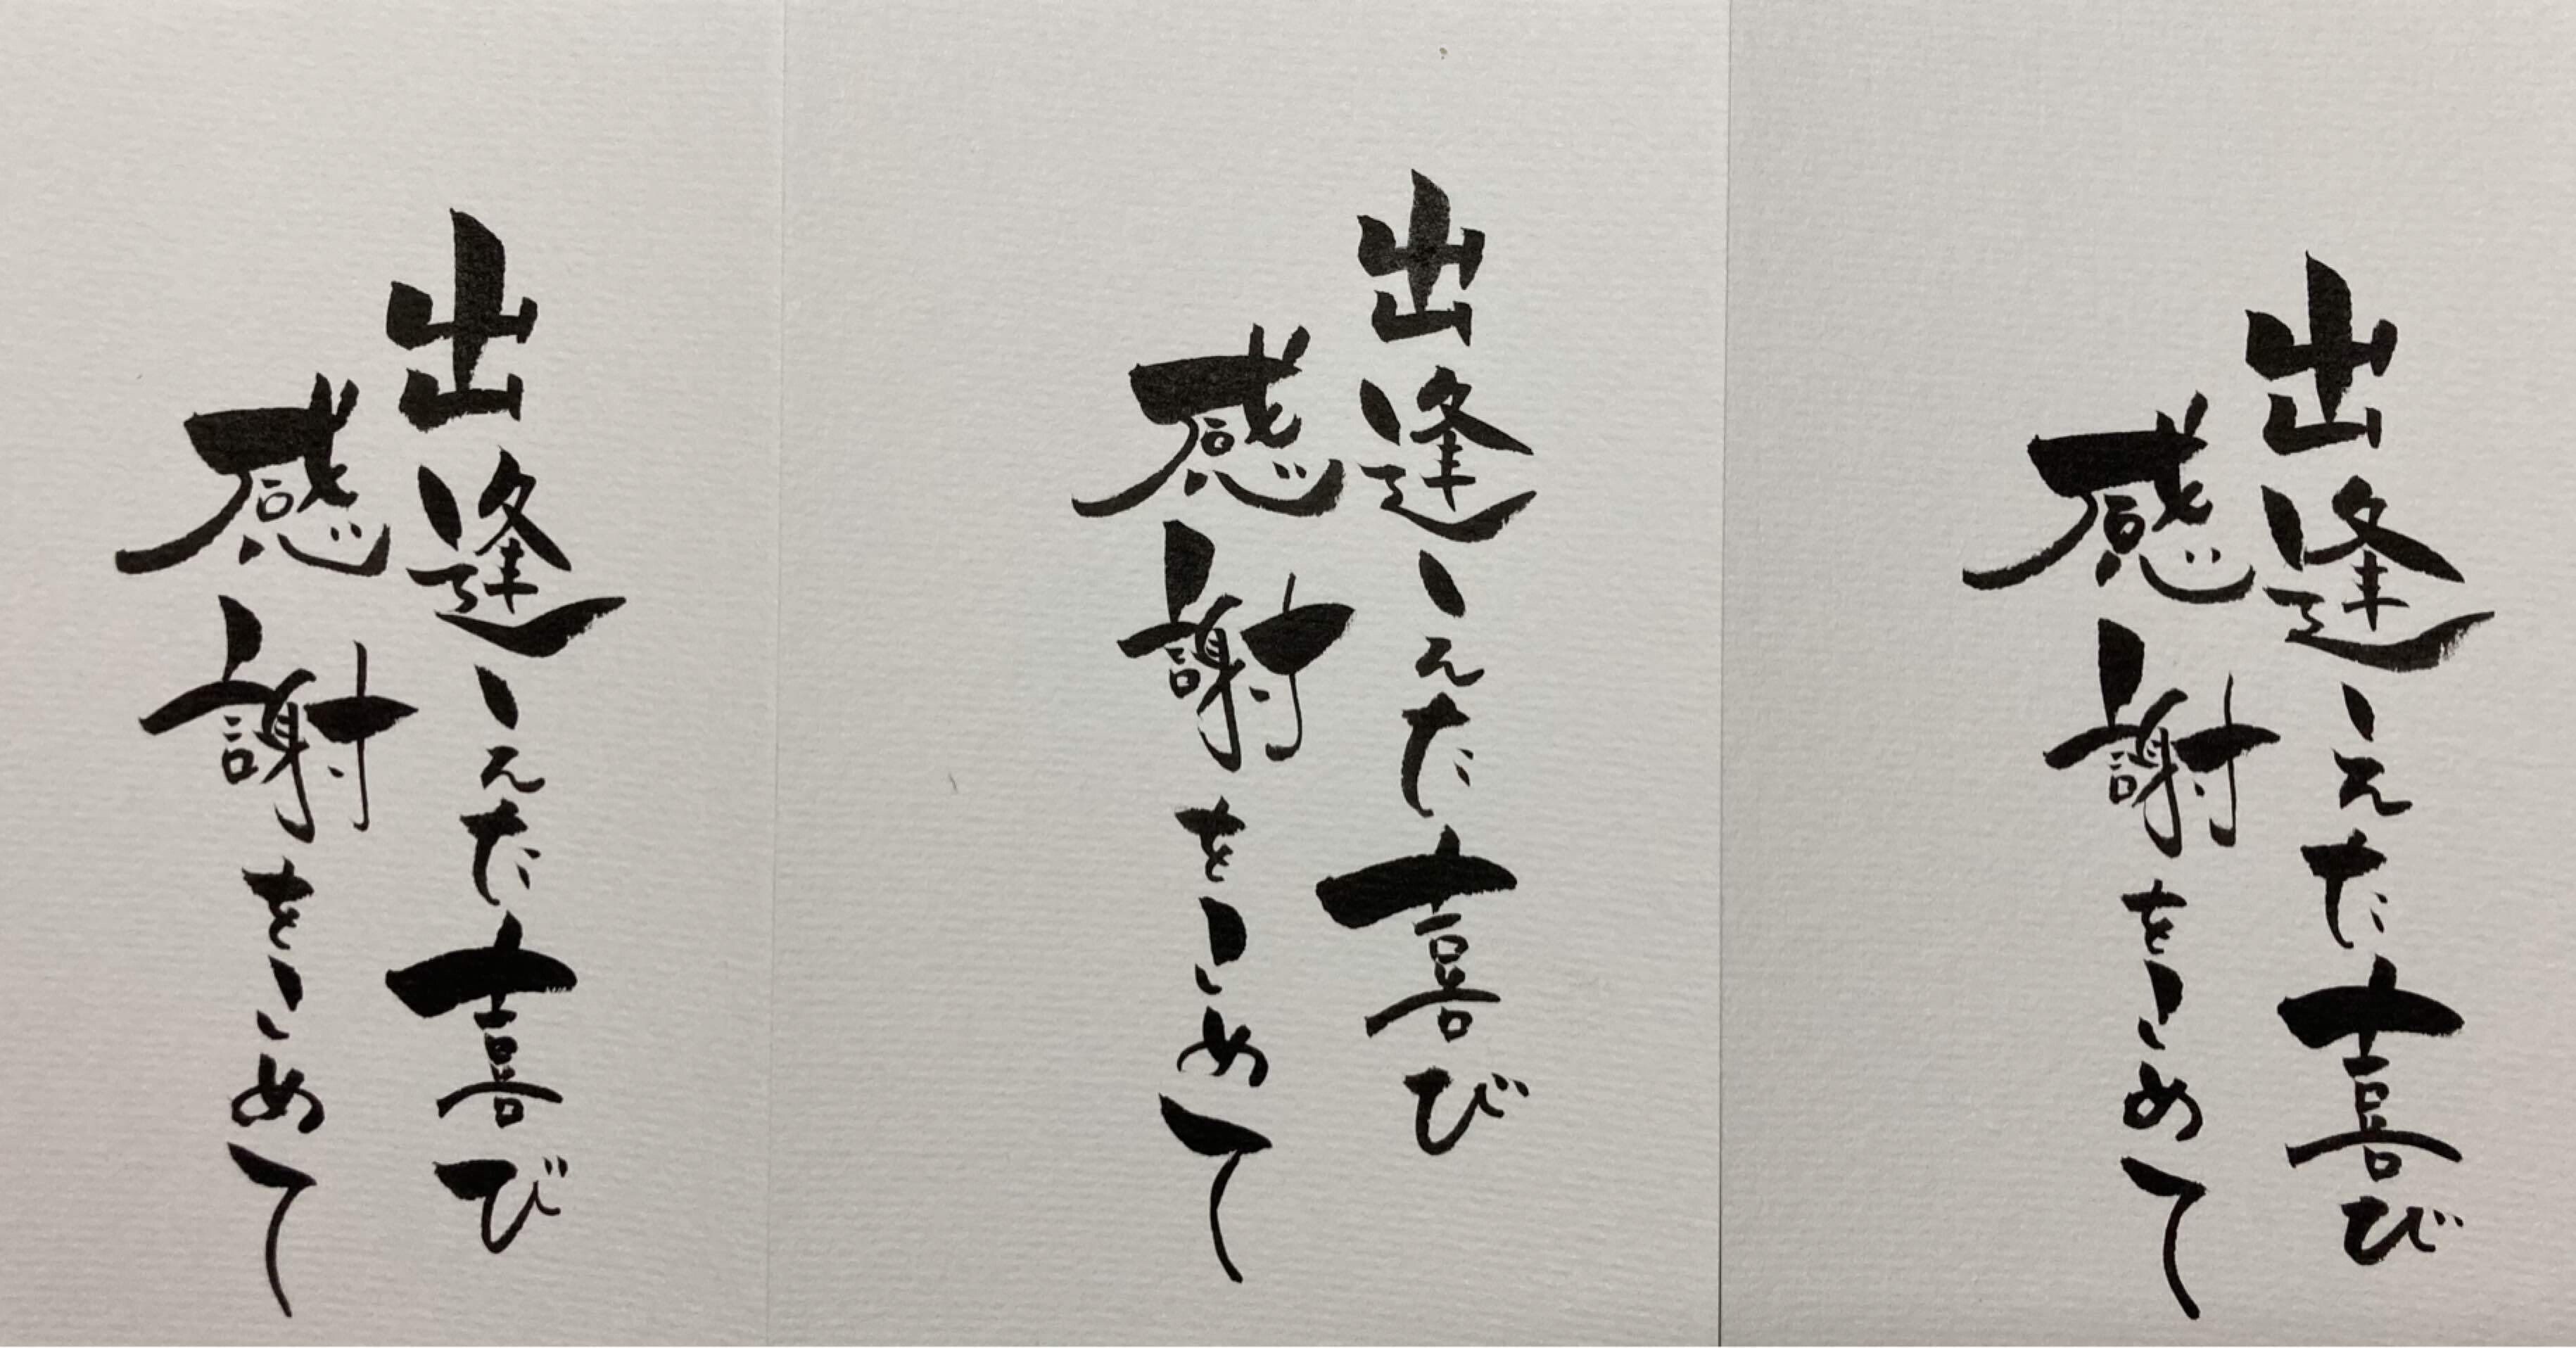 出逢えた喜び
感謝をこめて
出逢えた喜び
感謝をこめて
出逢えた喜び
感謝をこめて